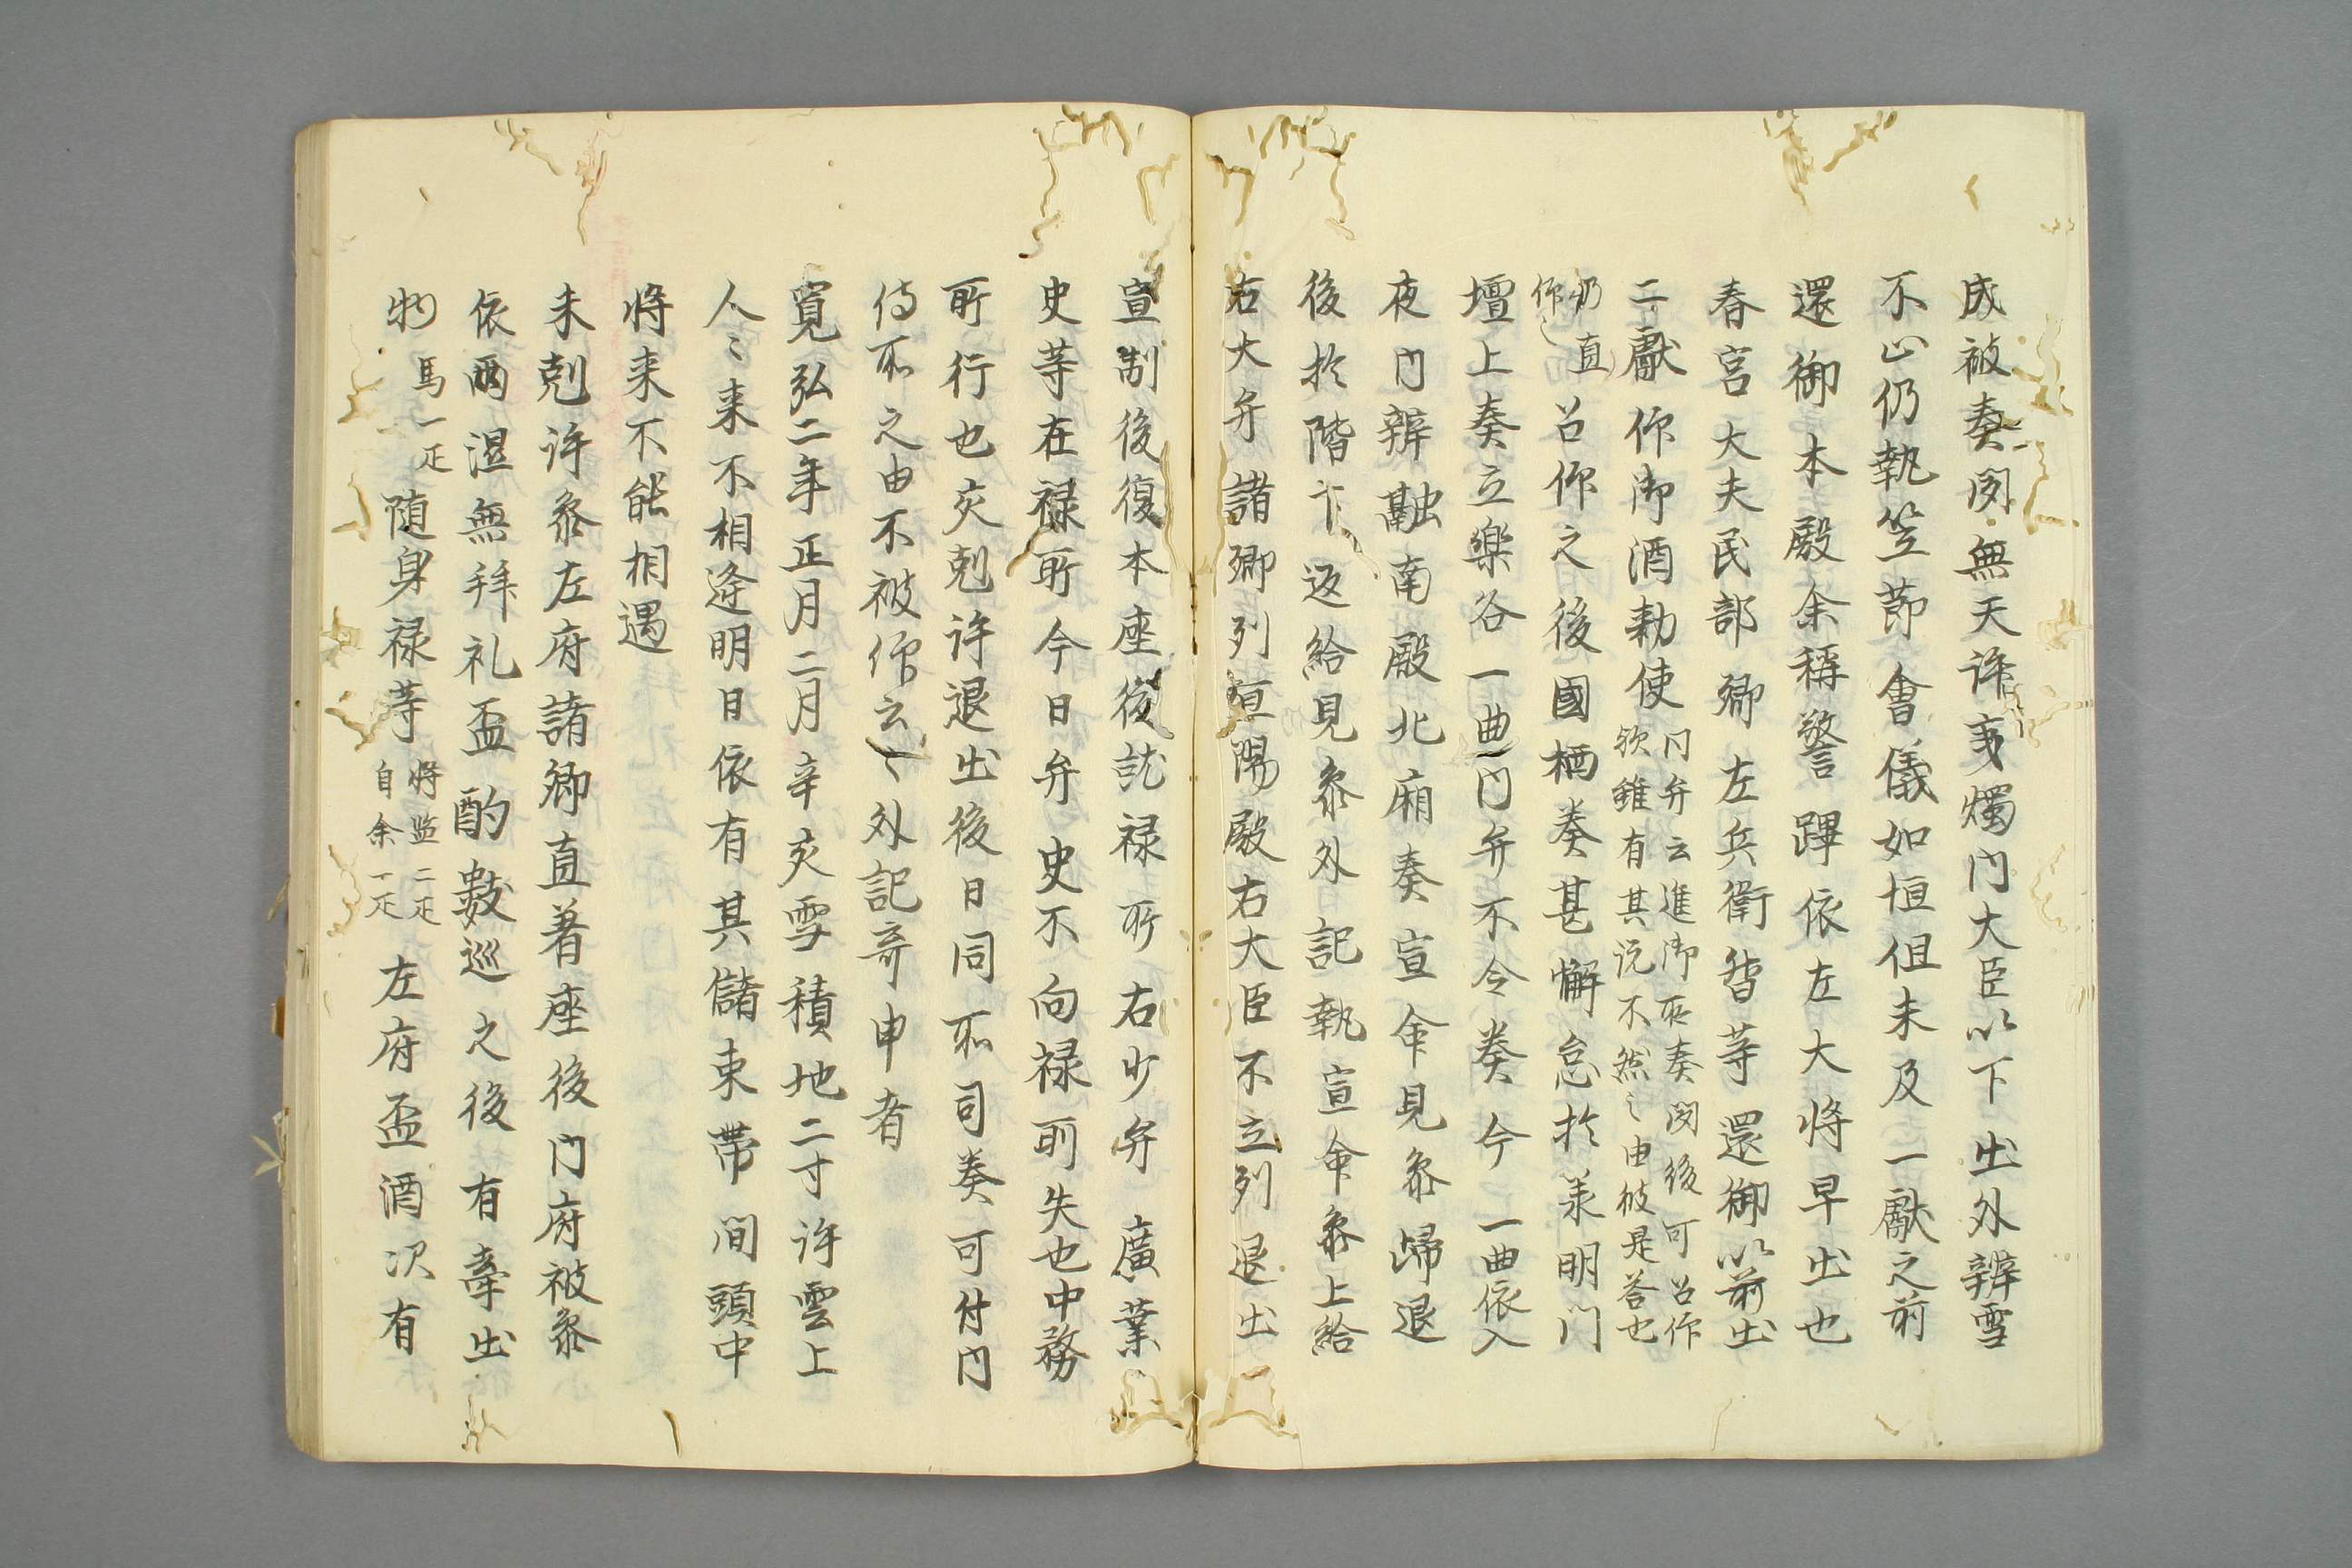 成被奏閇無天許亥燭門大臣以下出外辨雪
不止仍執笠節會儀如恒但未及一獻之前
還御本殿余稱警蹕依左大将早出也
春宮大夫民部卿左兵衛督等還御以前出
二獻仰御酒勅使
門弁云進御所奏閇後可召仰
欤雖有其说不然之由彼是答也
仍直
仰〻
召仰之後國栖奏甚懈怠於兼明門
壇上奏立樂各一曲門弁不令奏今一曲依入
夜門辨䎤南殿北廂奏宣命見参歸退
後於階下返給見参外記執宣命参上給
右大弁諸卿列宜陽殿右大臣不立列退出
宣制後復本座後就禄所右少弁廣業
史等在禄所今日弁史不向禄所失也中務
所行也亥剋許退出後日同不司奏可付内
侍所之由不被仰云〻外記奇申者
寛弘二年正月二月辛亥雪積地二寸許雲上
人〻来不相逢明日依有其儲束帶間頭中
将来不能相遇
未剋許参左府諸卿直着座後門府被参
依雨湿無拜礼盃酌數巡之後有牽出
物
馬一疋
随身禄等
将监二疋
自余一疋
左府盃酒次有